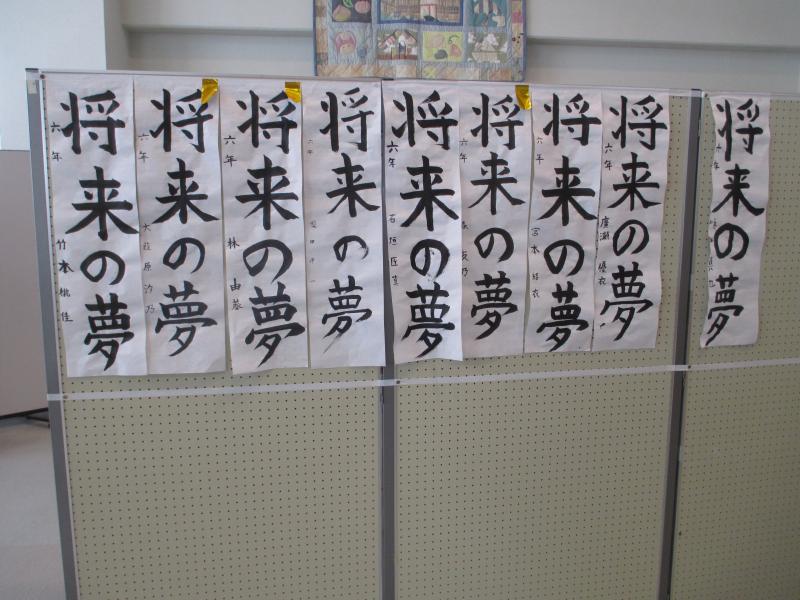 将来の夢
六年
竹本桃佳
将来の夢
六年
将来の夢
六年
林
将来の夢
将来の夢
六年
石垣匠
将来の夢
六年
将来の夢
六年
宮本
将来の夢
六年
廣瀬優衣
将来の夢